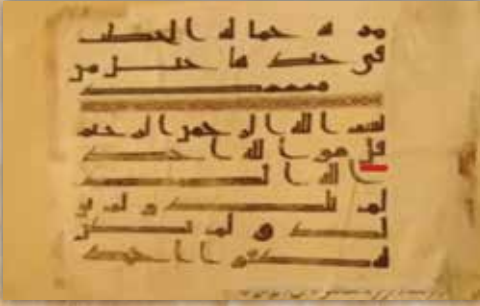 مر ته حما له ا لحطب
في جيد ها حبل من
مسد
بسم ا لله ا لر حمن ا لر حيم
قل هو ا لله ا حد
ا لله ا لصمد
لم يلد و لم يو
لد و لم يكن
له كفو ا ا حد